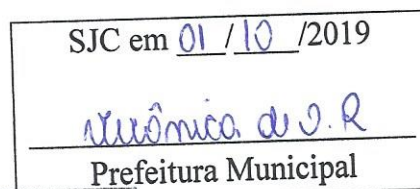 SJC em 01/10/2019
Verônica de O. R
Prefeitura Municipal